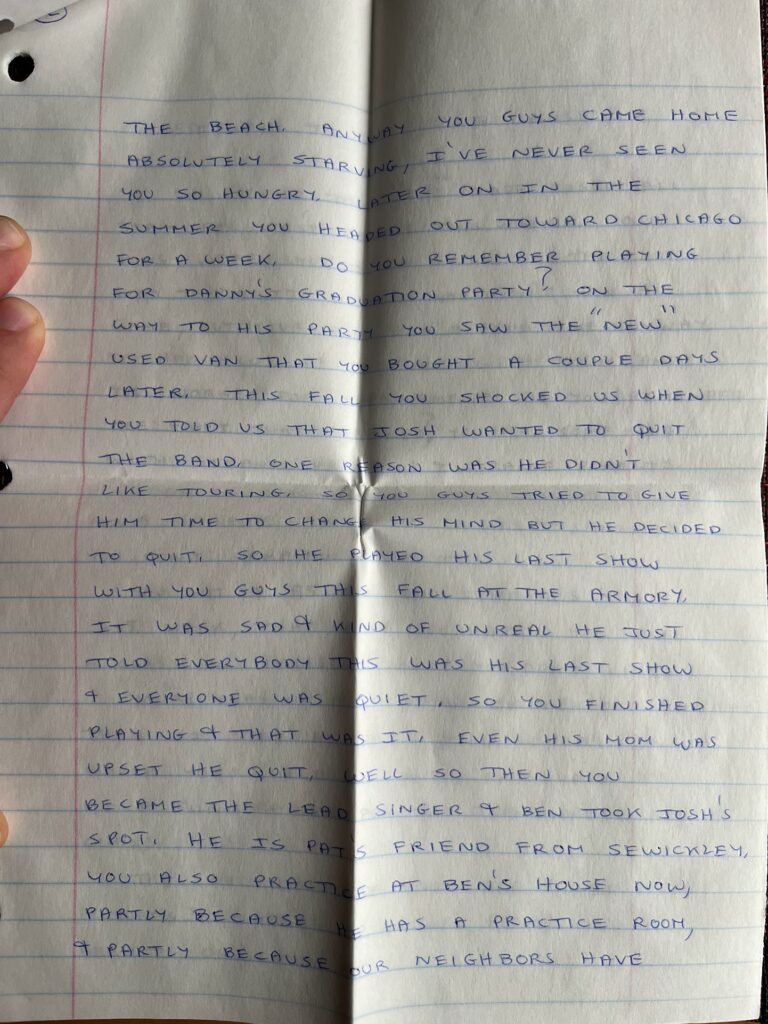 THE BEACH. ANYWAY YOU GUYS CAME HOME
ABSOLUTELY STARVING, I'VE NEVER SEEN
YOU SO HUNGRY. LATER ON IN THE
SUMMER YOU HEADED OUT TOWARD CHICAGO
FOR A WEEK. DO YOU REMEMBER PLAYING
FOR DANNY'S GRADUATION PARTY? ON THE
WAY TO HIS PARTY YOU SAW THE "NEW"
USED VAN THAT YOU BOUGHT A COUPLE DAYS
LATER. THIS FALL YOU SHOCKED US WHEN
YOU TOLD US THAT JOSH WANTED TO QUIT
THE BAND. ONE REASON WAS HE DIDN'T
LIKE TOURING. SO YOU GUYS TRIED TO GIVE
HIM TIME TO CHANGE HIS MIND BUT HE DECIDED
TO QUIT. SO HE PLAYED HIS LAST SHOW
WITH YOU GUYS THIS FALL AT THE ARMORY.
IT WAS SAD & KIND OF UNREAL HE JUST
TOLD EVERYBODY THIS WAS HIS LAST SHOW
& EVERYONE WAS QUIET. SO YOU FINISHED
PLAYING & THAT WAS IT. EVEN HIS MOM WAS
UPSET HE QUIT. WELL SO THEN YOU
BECAME THE LEAD SINGER & BEN TOOK JOSH'S
SPOT. HE IS PAT'S FRIEND FROM SEWICKLEY.
YOU ALSO PRACTICE AT BEN'S HOUSE NOW,
PARTLY BECAUSE HE HAS A PRACTICE ROOM,
& PARTLY BECAUSE OUR NEIGHBORS HAVE